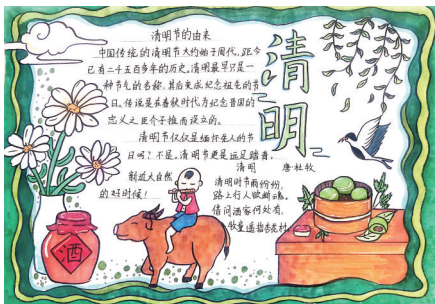 清明节的由来
中国传统的清明节大约始于周代，距今
已有二千五百多年的历史。清明最早只是一
种节气的名称，其后变成纪念祖先的节
日。传说是在春秋时代为纪念晋国的
忠义之臣介子推而设立的。
清明节仅仅是缅怀先人的节
日吗？不是。清明节更是远足踏青、
亲近大自然
的好时候！
清明
清明 唐杜牧
清明时节雨纷纷，
路上行人欲断魂。
借问酒家何处有，
牧童遥指杏花村。
酒